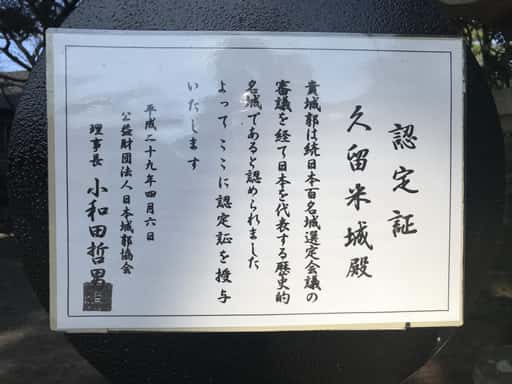 認定証
久留米城殿
貴城郭は続日本百名城選定会議の
審議を経て日本を代表する歴史的
名城であると認められました
よってここに認定証を授与
いたします
平成二十九年四月六日
公益財団法人日本城郭協会
理事長 小和田哲男